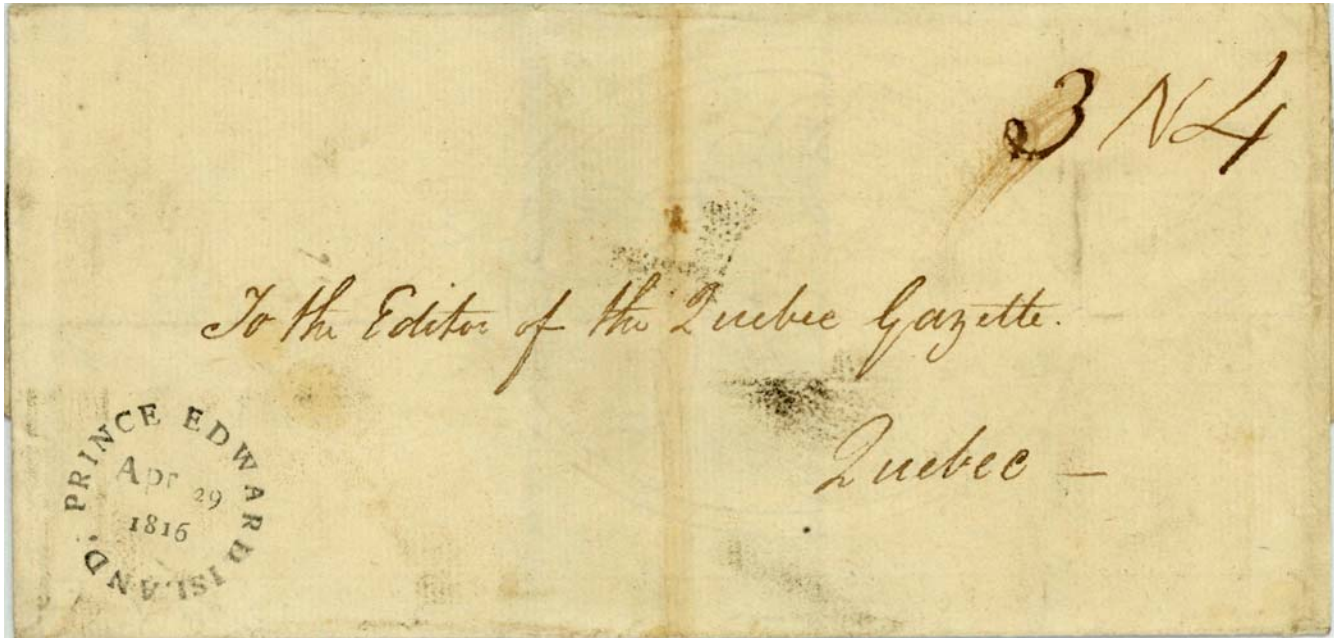 3 N 4
To the Editor of the Quebec Gazette.
Quebec —
PRINCE EDWARD ISLAND.
Apr 29
1816